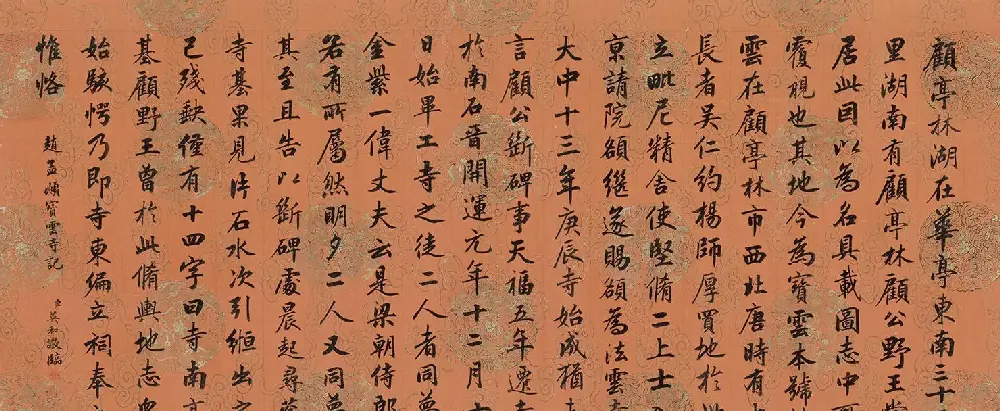 顧亭林湖在華亭東南三十
里湖南有顧亭林顧公野王嘗
居此因以為名具載圖志中
覆視也其地今為寶雲本號
雲在顧亭林市西北唐時有
長者吳仁約楊師厚買地於
立毗尼精舍使堅脩二上士
京請院額繼遂賜額為法雲
大中十三年庚辰寺始成猶
言顧公斷碑事天福五年遷
於南石晉開運元年十二月
日始畢工寺之徒二人者同夢
金紫一偉丈夫云是梁朝侍郎
若有所屬然明夕二人又同夢
其至且告以斷碑處晨起尋
寺基果見片石水次引縆出
已殘缺僅有十四字曰寺南
基顧野王曾於此脩輿地志
始駭愕乃即寺東偏立祠奉
惟恪
趙孟頫寶雲寺記
臣英和敬臨